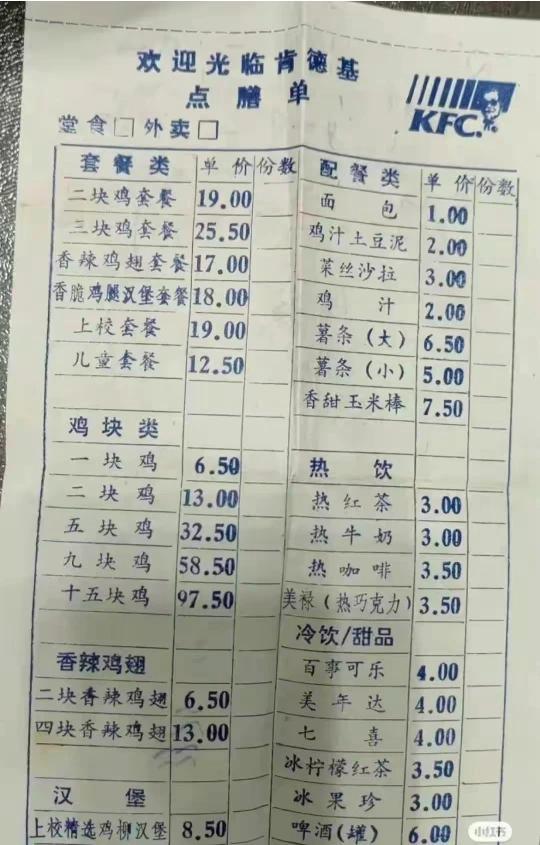 欢迎光临肯德基
点膳单
KFC.
堂食□ 外卖□
套餐类 单价 份数
二块鸡套餐 19.00
三块鸡套餐 25.50
香辣鸡翅套餐 17.00
香脆鸡腿汉堡套餐 18.00
上校套餐 19.00
儿童套餐 12.50
鸡块类
一块鸡 6.50
二块鸡 13.00
五块鸡 32.50
九块鸡 58.50
十五块鸡 97.50
香辣鸡翅
二块香辣鸡翅 6.50
四块香辣鸡翅 13.00
汉堡
上校精选鸡柳汉堡 8.50
配餐类 单价 份数
面包 1.00
鸡汁土豆泥 2.00
菜丝沙拉 3.00
鸡汁 2.00
薯条(大) 6.50
薯条(小) 5.00
香甜玉米棒 7.50
热饮
热红茶 3.00
热牛奶 3.00
热咖啡 3.50
美禄(热巧克力) 3.50
冷饮/甜品
百事可乐 4.00
美年达 4.00
七喜 4.00
冰柠檬红茶 3.50
冰果珍 3.00
啤酒(罐) 6.00
小红书